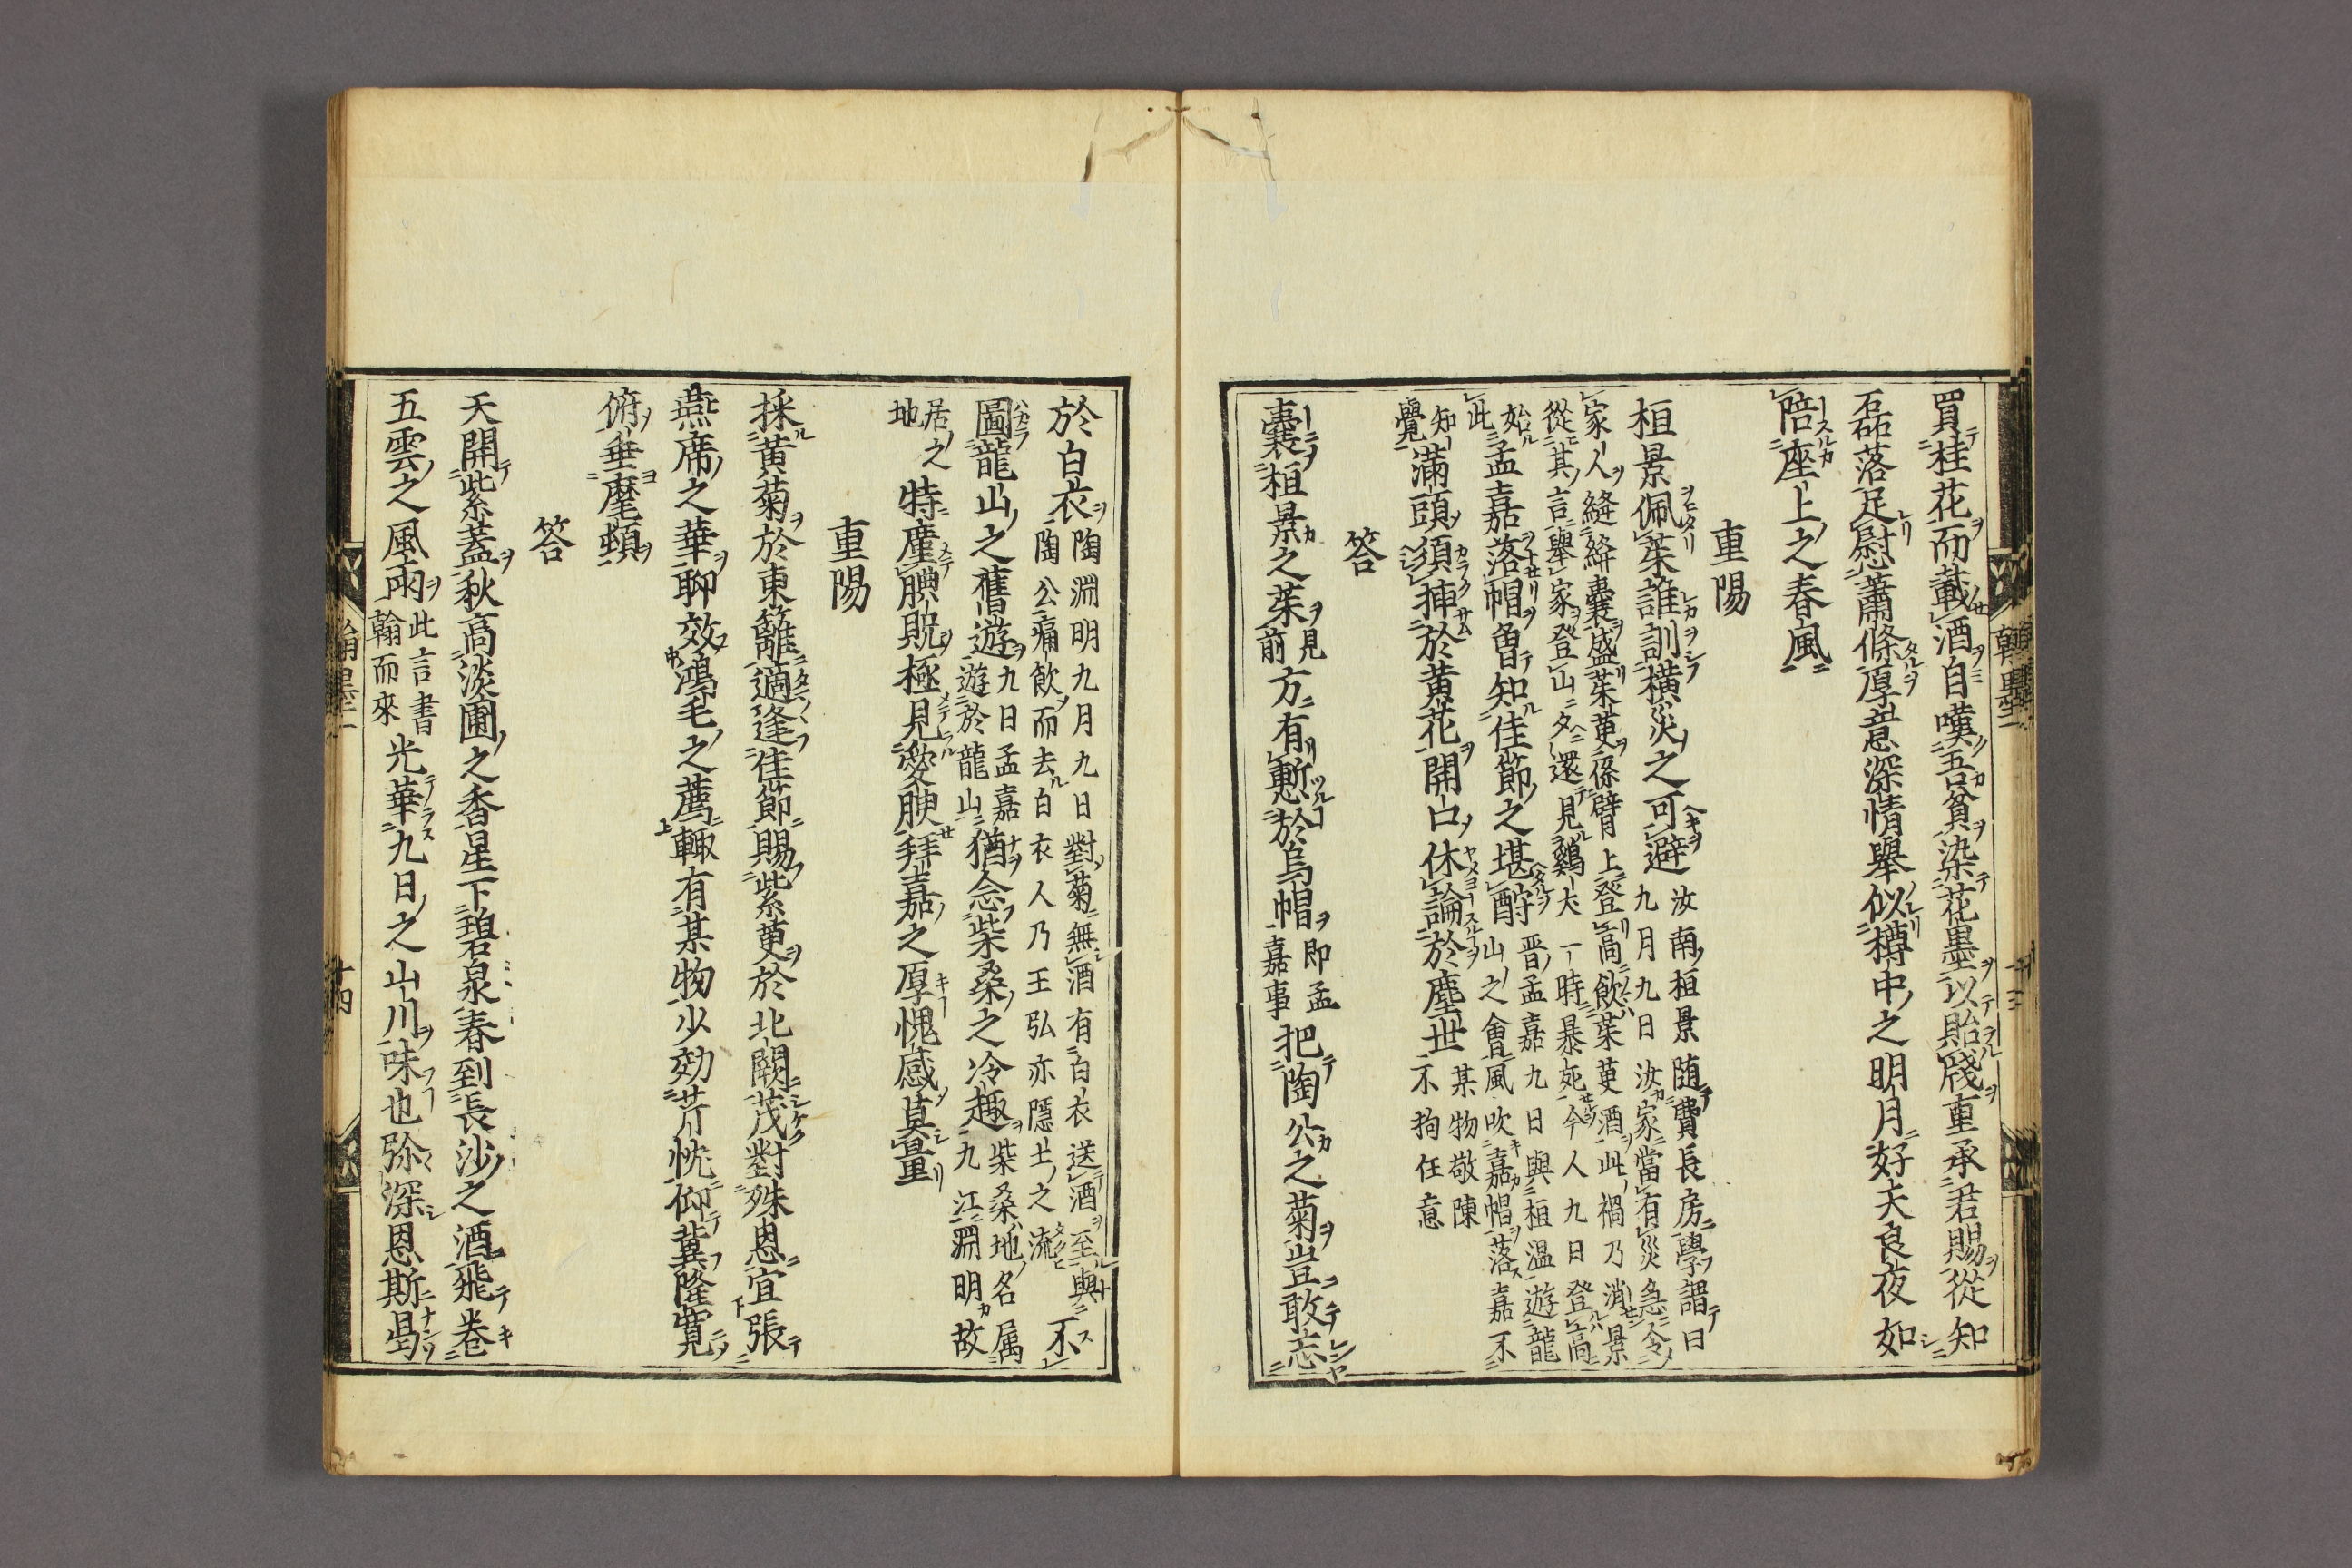 買桂花而載酒自嘆吾貧染花墨以貽牋重承君賜從知
磊落足慰蕭條厚意深情舉似樽中之明月好天良夜如
陪座上之春風
重陽
桓景佩茱誰訓橫災之可避
汝南桓景随費長房學謂曰
九月九日汝家當有災急令
家人縫絳囊盛茱萸係臂上登高飲茱萸酒此禍乃消景
從其言舉家登山夕還見鷄犬一時暴死今人九日登高
始
此
孟嘉落帽曾知佳節之堪酧
晋孟嘉九日與桓温遊龍
山之會風吹嘉帽落嘉不
知
覺
滿頭須挿於黄花開口休論於塵世
某物敬陳
不拘任意
答
囊桓景之茱
見
前
方有慙於烏帽
即孟
嘉事
把陶公之菊豈敢忘
於白衣
陶淵明九月九日對菊無酒有白衣送酒至與
陶公痛飲而去白衣人乃王弘亦隱士之流
不
圖龍山之舊遊
九日孟嘉
遊於龍山
猶念柴桑之冷趣
柴桑地名属
九江淵明故
居之
地
之特廑腆貺極見愛腴拜嘉之厚愧感莫量
重陽
採黄菊於東籬適逢佳節賜紫萸於北闕茂對殊恩宜張
燕席之華聊效鴻毛之薦輙有某物少効芹忱仰冀隆寛
俯垂麾頓
答
天開紫蓋秋高淡圃之香星下碧泉春到長沙之酒飛卷
五雲之風雨
此言書
翰而來
光華九日之山川味也弥深恩斯曷
翰墨一
十四